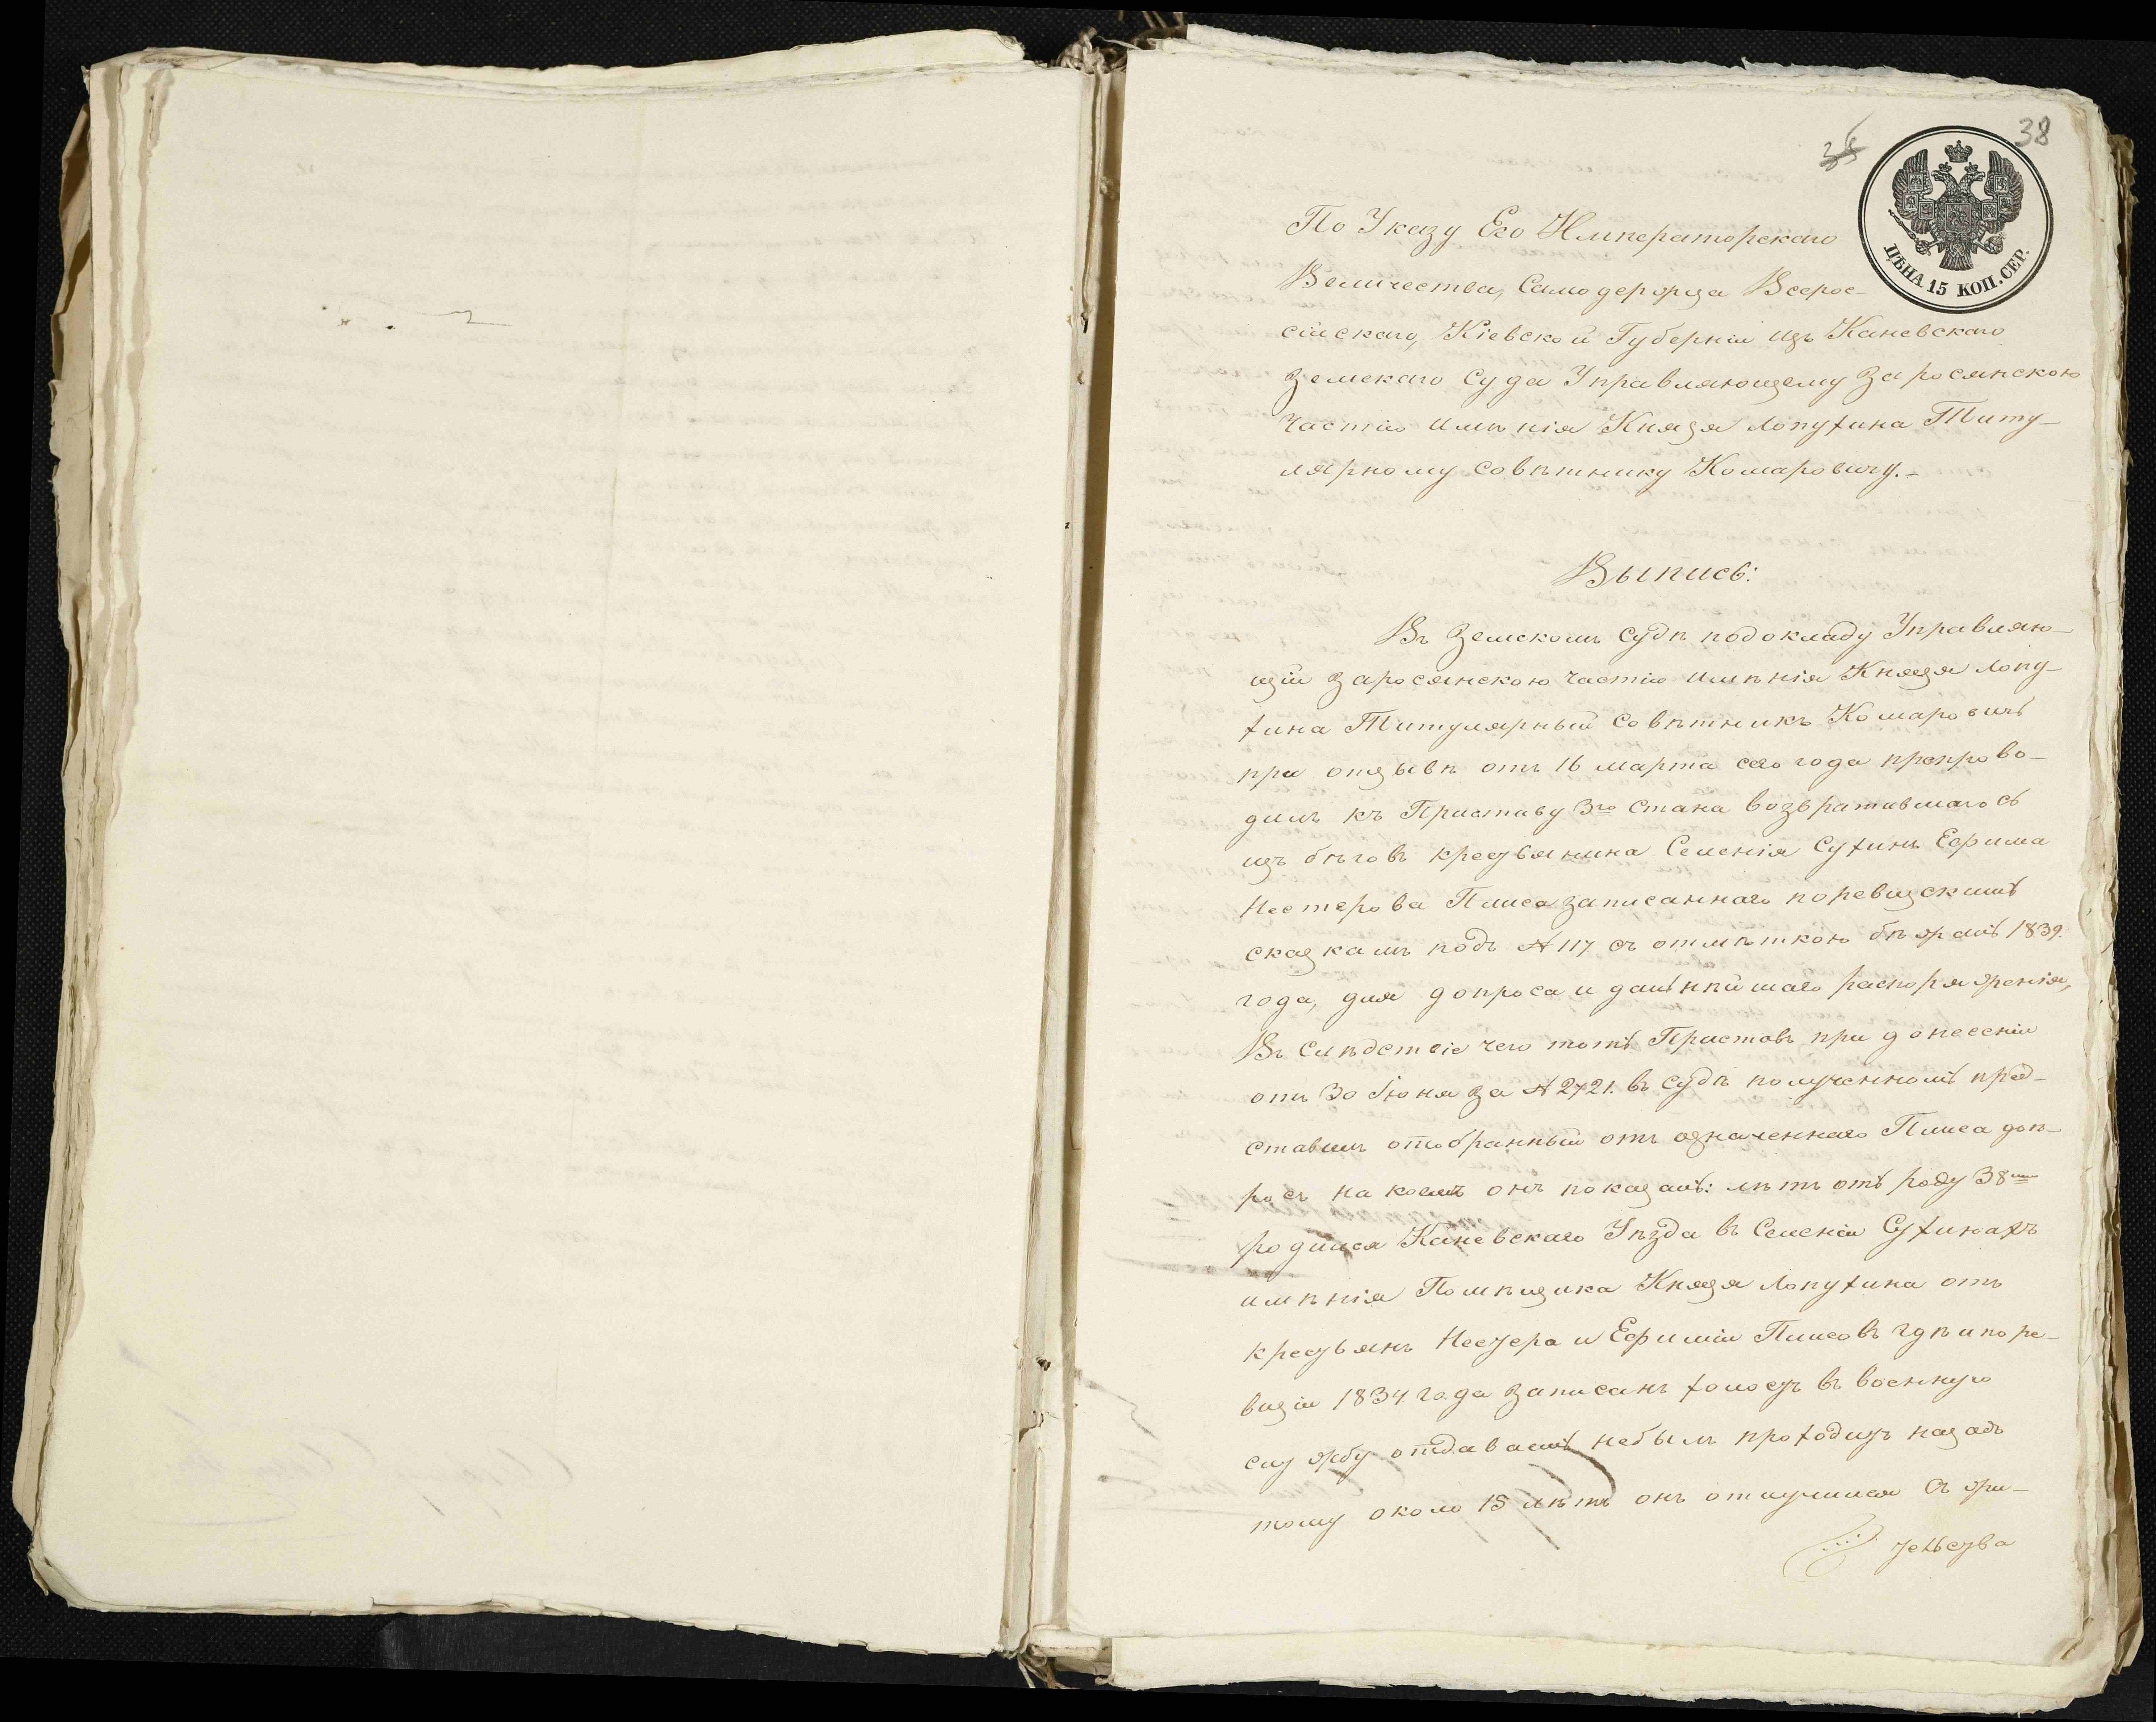 38
ЦѢНА 15 КОП. СЕР.
По Указу Его Императорскаго
Величества, Самодержца Всерос-
сійскаго, Кіевской Губерніи изъ Каневскаго
Земскаго Суда Управляющему Заросянскою
Частію имѣнія Князя Лопухина Титу-
лярному Совѣтнику Комаровичу.-
Выпись:
Въ Земскомъ Судѣ подокладу Управляю-
щій Заросянскою частію имѣнія Князя Лопу-
хина Титулярный Совѣтникъ Комаровичъ
при отзывѣ отъ 16 марта сего года препрово-
дилъ къ Приставу 3го Стана возвратившагось
изъ бѣговъ крестьянина Селенія Сухинъ Ефима
Нестерова Плиса записаннаго поревизскимъ
сказкамъ подъ № 117 съ отмѣткою бѣжалъ 1839.
года, для допроса и далѣнѣйшаго распоряженія,
Въ Слѣдствіе чего тотъ Приставъ при донесеніи
отъ 30 Іюня за № 2721. въ Судѣ полученномъ пред-
ставилъ отобранный отъ означеннаго Плиса доп-
росъ на коемъ онъ показалъ: лѣтъ отъ роду 38
родился Каневскаго Уѣзда въ Селеніи Сухинахъ
имѣнія Помѣщика Князя Лопухина отъ
крестьянъ Нестера и Ефиміи Плисовъ гдѣ и поре-
визіи 1834 года записанъ холостъ въ военную
службу отдаванъ небылъ проходитъ назадъ
тому около 15 лѣтъ онъ отлучился съ жи-
тельства